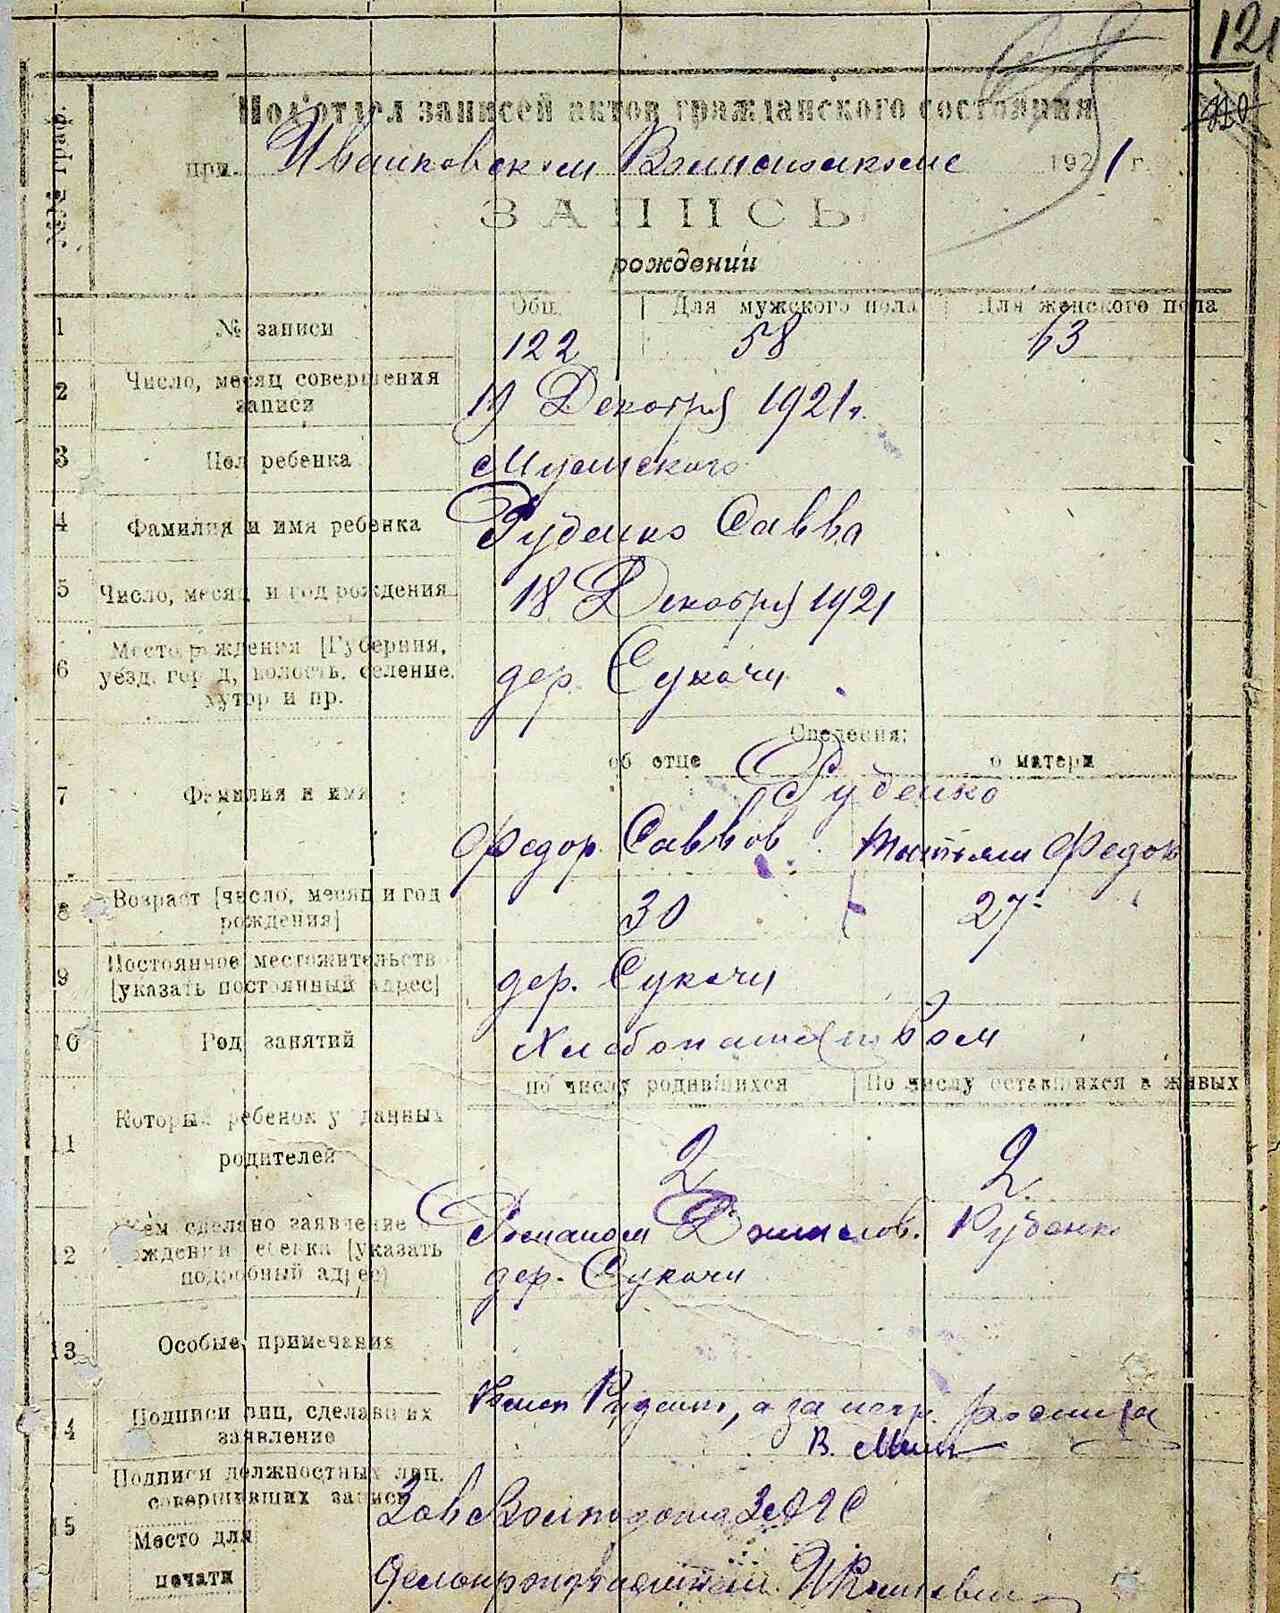 121
120
№№ граф.
Подотдел записей актов гражданского состояния
при Иванковском Волисполкоме 1921 г.
ЗАПИСЬ
рождении
Общ. Для мужского пола Для женского пола
1 № записи 122 58 63
2 Число, месяц совершения
записи 19 Декабря 1921 г.
3 Пол ребенка Мужского
4 Фамилия и имя ребенка Руденко Савва
5 Число, месяц и год рождения 18 Декабря 1921
Место рождения [Губерния,
6 уезд, город, волость, селение, дер. Сукачи
хутор и пр.
Сведения:
об отце о матери
7 Фамилья и имя Руденко
Федор Саввов Татьяна Федоров
8 Возраст [число, месяц и год 30 27
рождения]
Постоянное местожительств
9 [указать постоянный адрес] дер. Сукачи
10 Род занятий Хлебопашеством
по числу родившихся По числу оставшихся в живых
11 Который ребенок у данных
родителей 2 2
Кем сделано заявление о Романом Руденко
12 рождении ребенка [указать
подробный адрес] дер. Сукачи
13 Особые примечания
14 Подписи лиц, сделавших Роман Руденко, а за негр. росписа
заявление В.
Подписи должностных лиц,
совершивших запись Зав Волподотд ЗАГС
15 Место для
печати Делопроизводитель